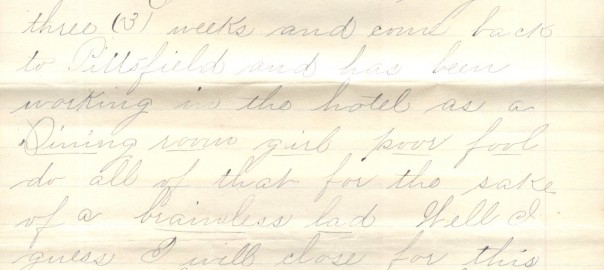 three (3) weeks and come back
to Pittsfield and has been
working in the hotel as a
Dining room girl poor fool
do all of that for the sake
of a brainless lad Well I
guess I will close for this